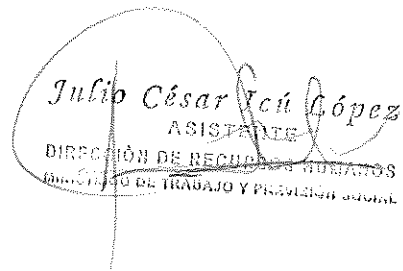 Julio César Icú López
ASISTENTE
DIRECCIÓN DE RECURSOS HUMANOS
MINISTERIO DE TRABAJO Y PREVISIÓN SOCIAL